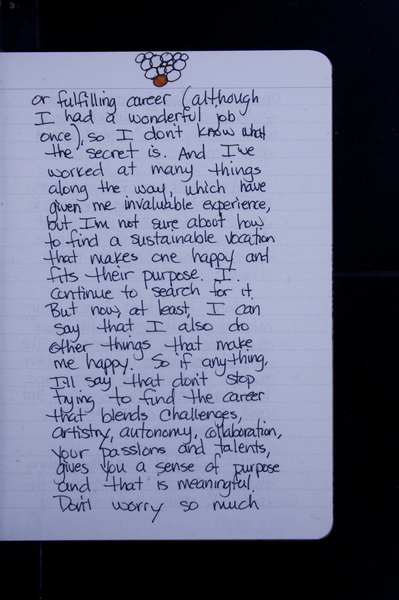 or fulfilling career (although
I had a wonderful job
once), so I don't know what
the secret is. And I've
worked at many things
along the way, which have
given me invaluable experience,
but I'm not sure about how
to find a sustainable vocation
that makes one happy and
fits their purpose. I
continue to search for it.
But now, at least, I can
say that I also do
other things that make
me happy. So if anything,
I'll say, that don't stop
trying to find the career
that blends challenges,
artistry, autonomy, collaboration,
your passions and talents,
gives you a sense of purpose
and that is meaningful.
Don't worry so much